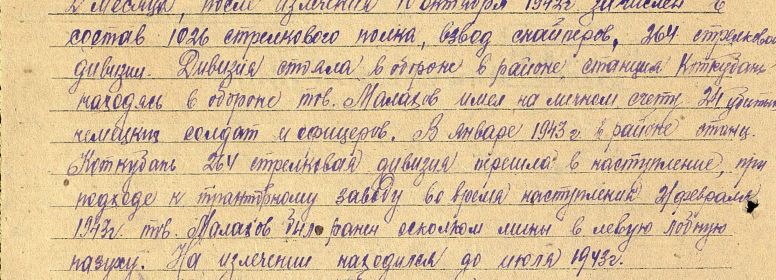 2 месяца, после излечения 10 октября 1942г. зачислен в
состав 1026 стрелкового полка, взвод снайперов, 264 стрелковой
дивизии. Дивизия стояла в обороне в районе станции Коткубань
находясь в обороне тов. Малахов имел на личном счету 24 убитых
немецких солдат и офицеров. В январе 1943г. в районе станц.
Коткубань 264 стрелковая дивизия перешла в наступление, при
подходе к тракторному заводу во время наступления 2 февраля
1943г. тов. Малахов был ранен осколком мины в левую лобную
пазуху. На излечении находился до июля 1943г.